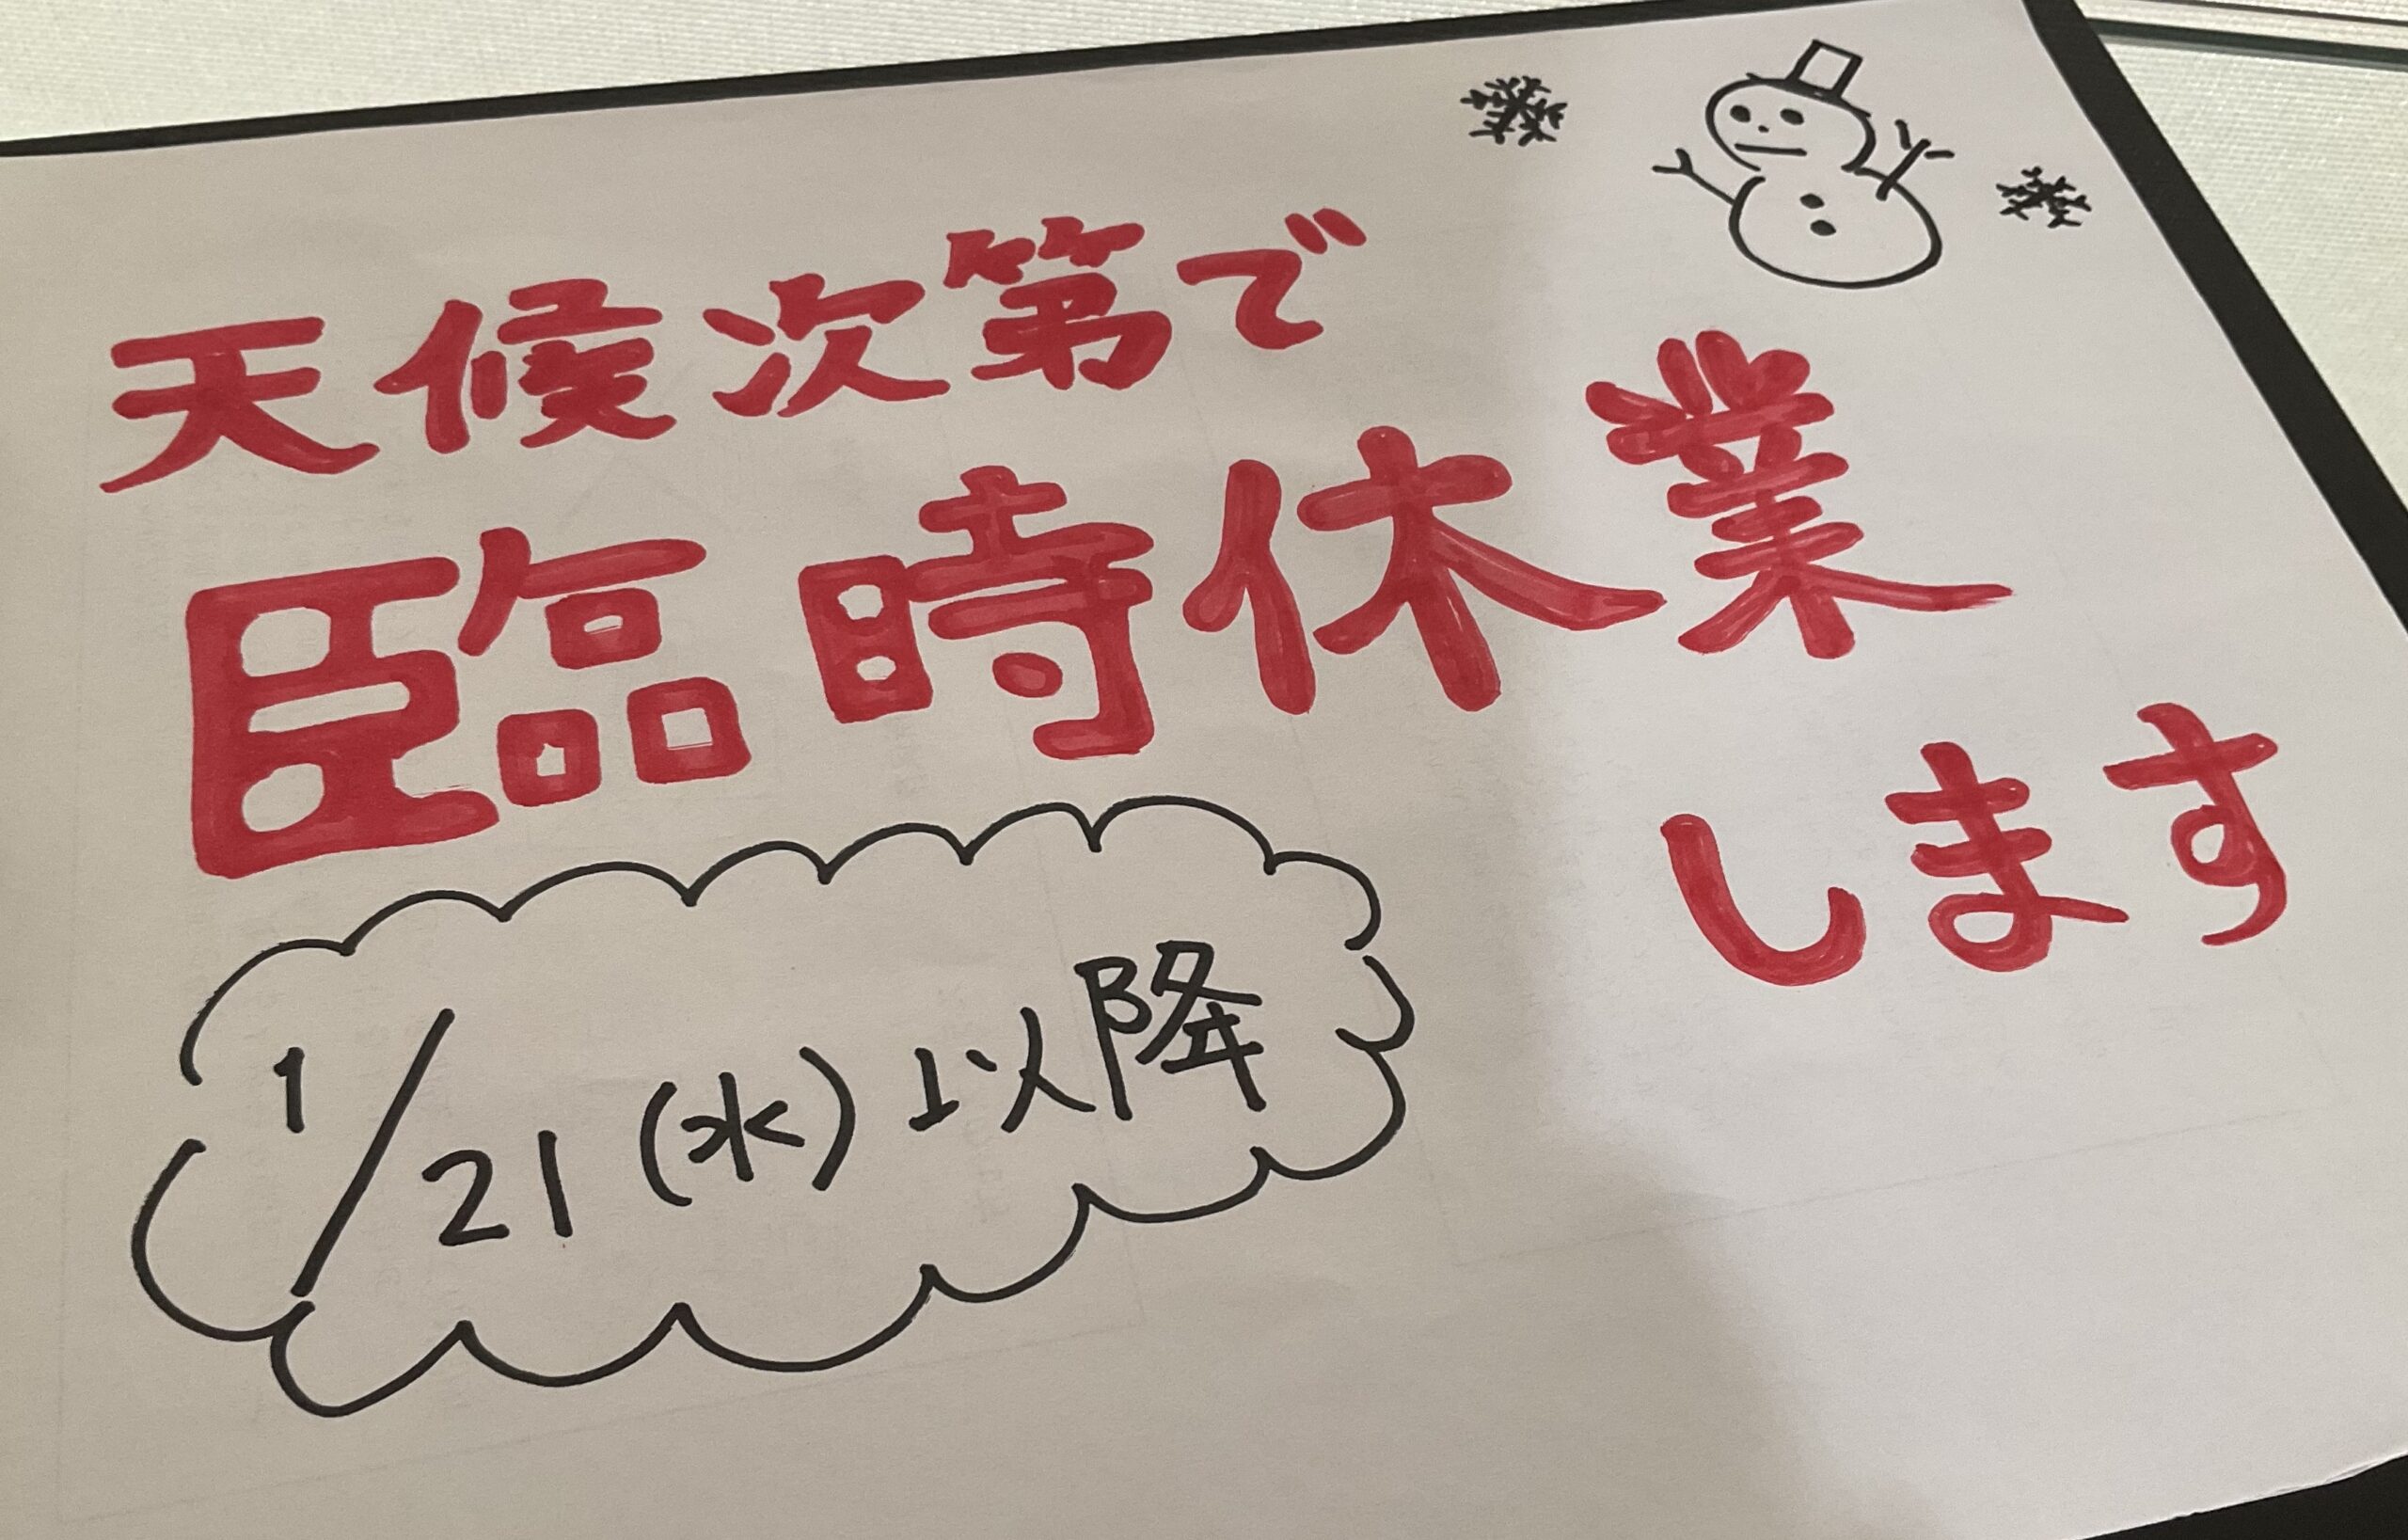 天候次第で
臨時休業
します
1/21(水)以降